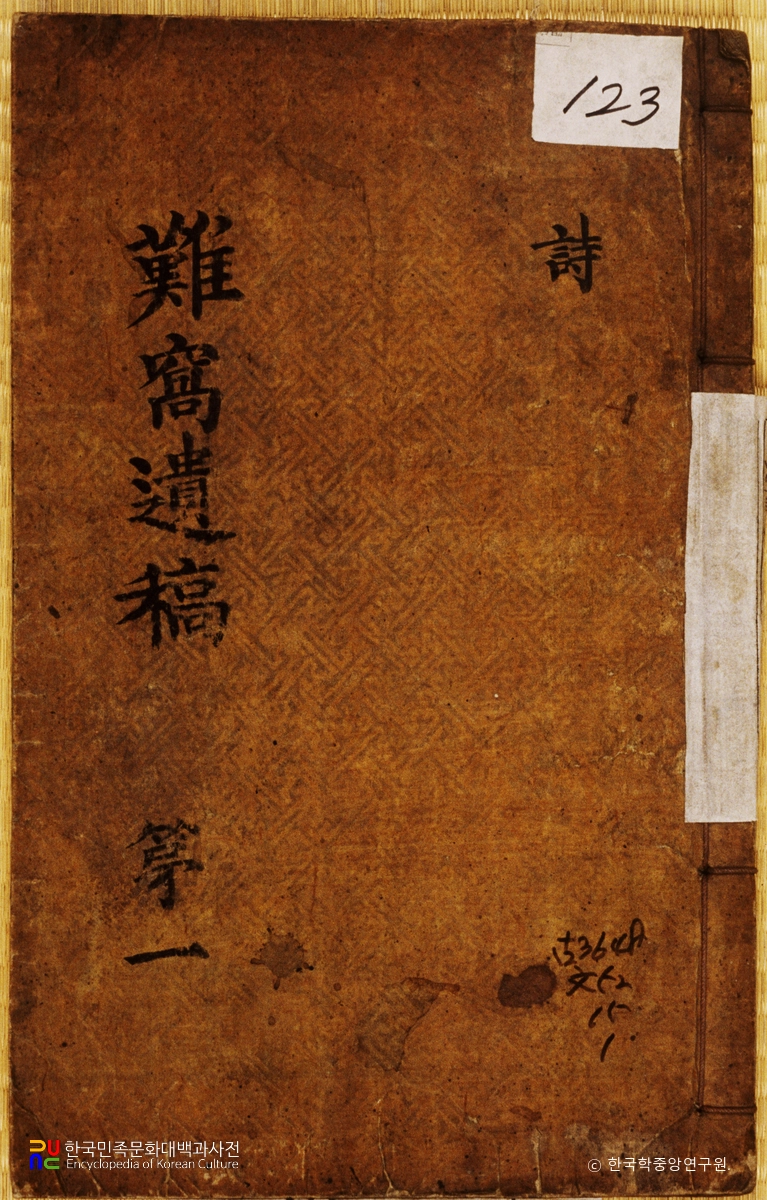 123
詩
難窩遺稿
第一
古3648
文52
15
1
한국민족문화대백과사전
Encyclopedia of Korean Culture
© 한국학중앙연구원.